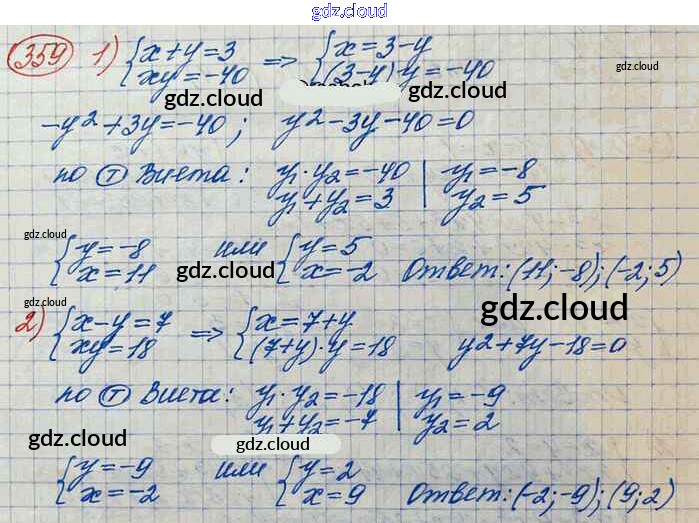 gdz.cloud
359 1) {x+y=3 xy=-40 => {x=3-y (3-y)·y=-40
gdz.cloud
gdz.cloud gdz.cloud
-y²+3y=-40; y²-3y-40=0
по Т Виета: y₁·y₂=-40 | y₁=-8
y₁+y₂=3 | y₂=5
gdz.cloud
{y=-8 x=11 или {y=5 x=-2 Ответ: (11;-8); (-2;5)
gdz.cloud
gdz.cloud
gdz.cloud
2) {x-y=7 xy=18 => {x=7+y (7+y)·y=18 y²+7y-18=0
по Т Виета: y₁·y₂=-18 | y₁=-9
y₁+y₂=-7 | y₂=2
gdz.cloud
gdz.cloud
{y=-9 x=-2 или {y=2 x=9 Ответ: (-2;-9); (9;2)